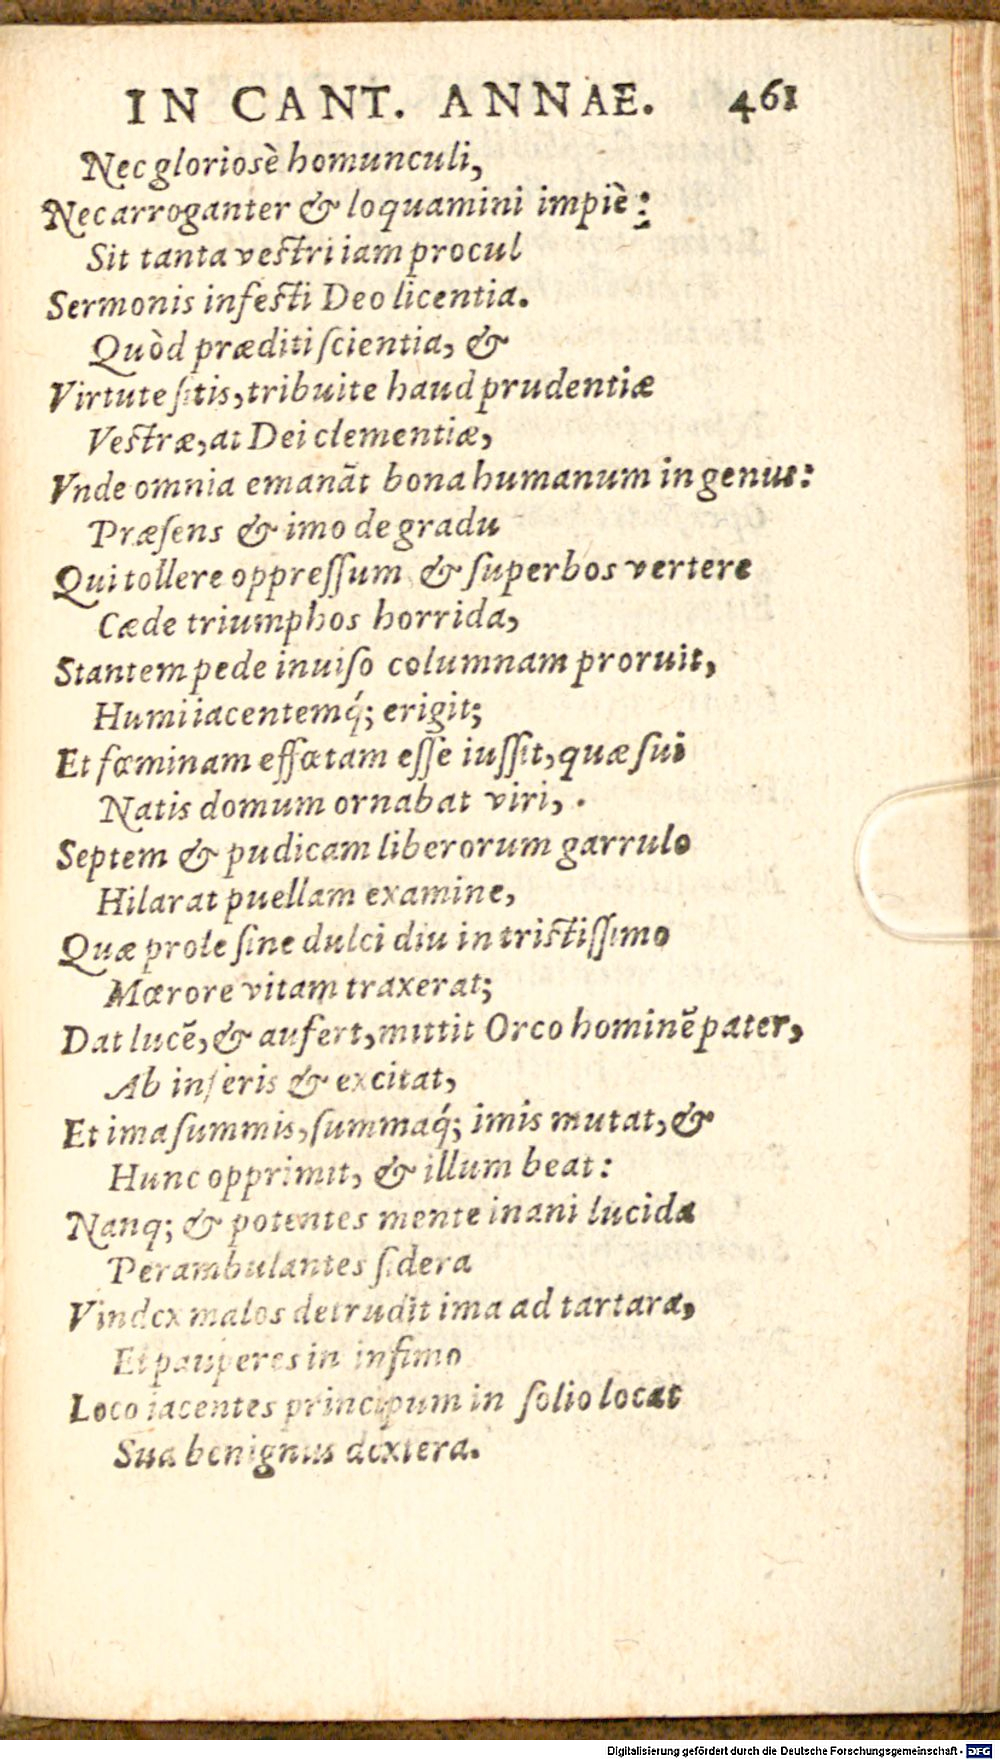 IN CANT. ANNAE. 461
Nec gloriosè homunculi,
Nec arroganter & loquamini impiè:
Sit tanta vestri iam procul
Sermonis infesti Deo licentia.
Quòd præditi ſcientia, &
Virtute ſitis, tribuite haud prudentiæ
Vestræ, at Dei clementiæ,
Vnde omnia emanāt bona humanum in genus:
Præſens & imo de gradu
Qui tollere oppreſſum & ſuperbos vertere
Cæde triumphos horrida,
Stantem pede inuiſo columnam proruit,
Humi iacentemq́; erigit;
Et fœminam effœtam eſſe iuſſit, quæ ſui
Natis domum ornabat viri,
Septem & pudicam liberorum garrulo
Hilarat puellam examine,
Quæ prole ſine dulci diu in tristiſſimo
Mœrore vitam traxerat;
Dat lucē, & aufert, mittit Orco hominē pater,
Ab inferis & excitat,
Et ima ſummis, ſummaq́; imis mutat, &
Hunc opprimit, & illum beat:
Nanq; & potentes mente inani lucida
Perambulantes ſidera
Vindex malos detrudit ima ad tartara,
Et pauperes in infimo
Loco iacentes principum in ſolio locat
Sua benignus dextera.
Digitalisierung gefördert durch die Deutsche Forschungsgemeinschaft - DFG